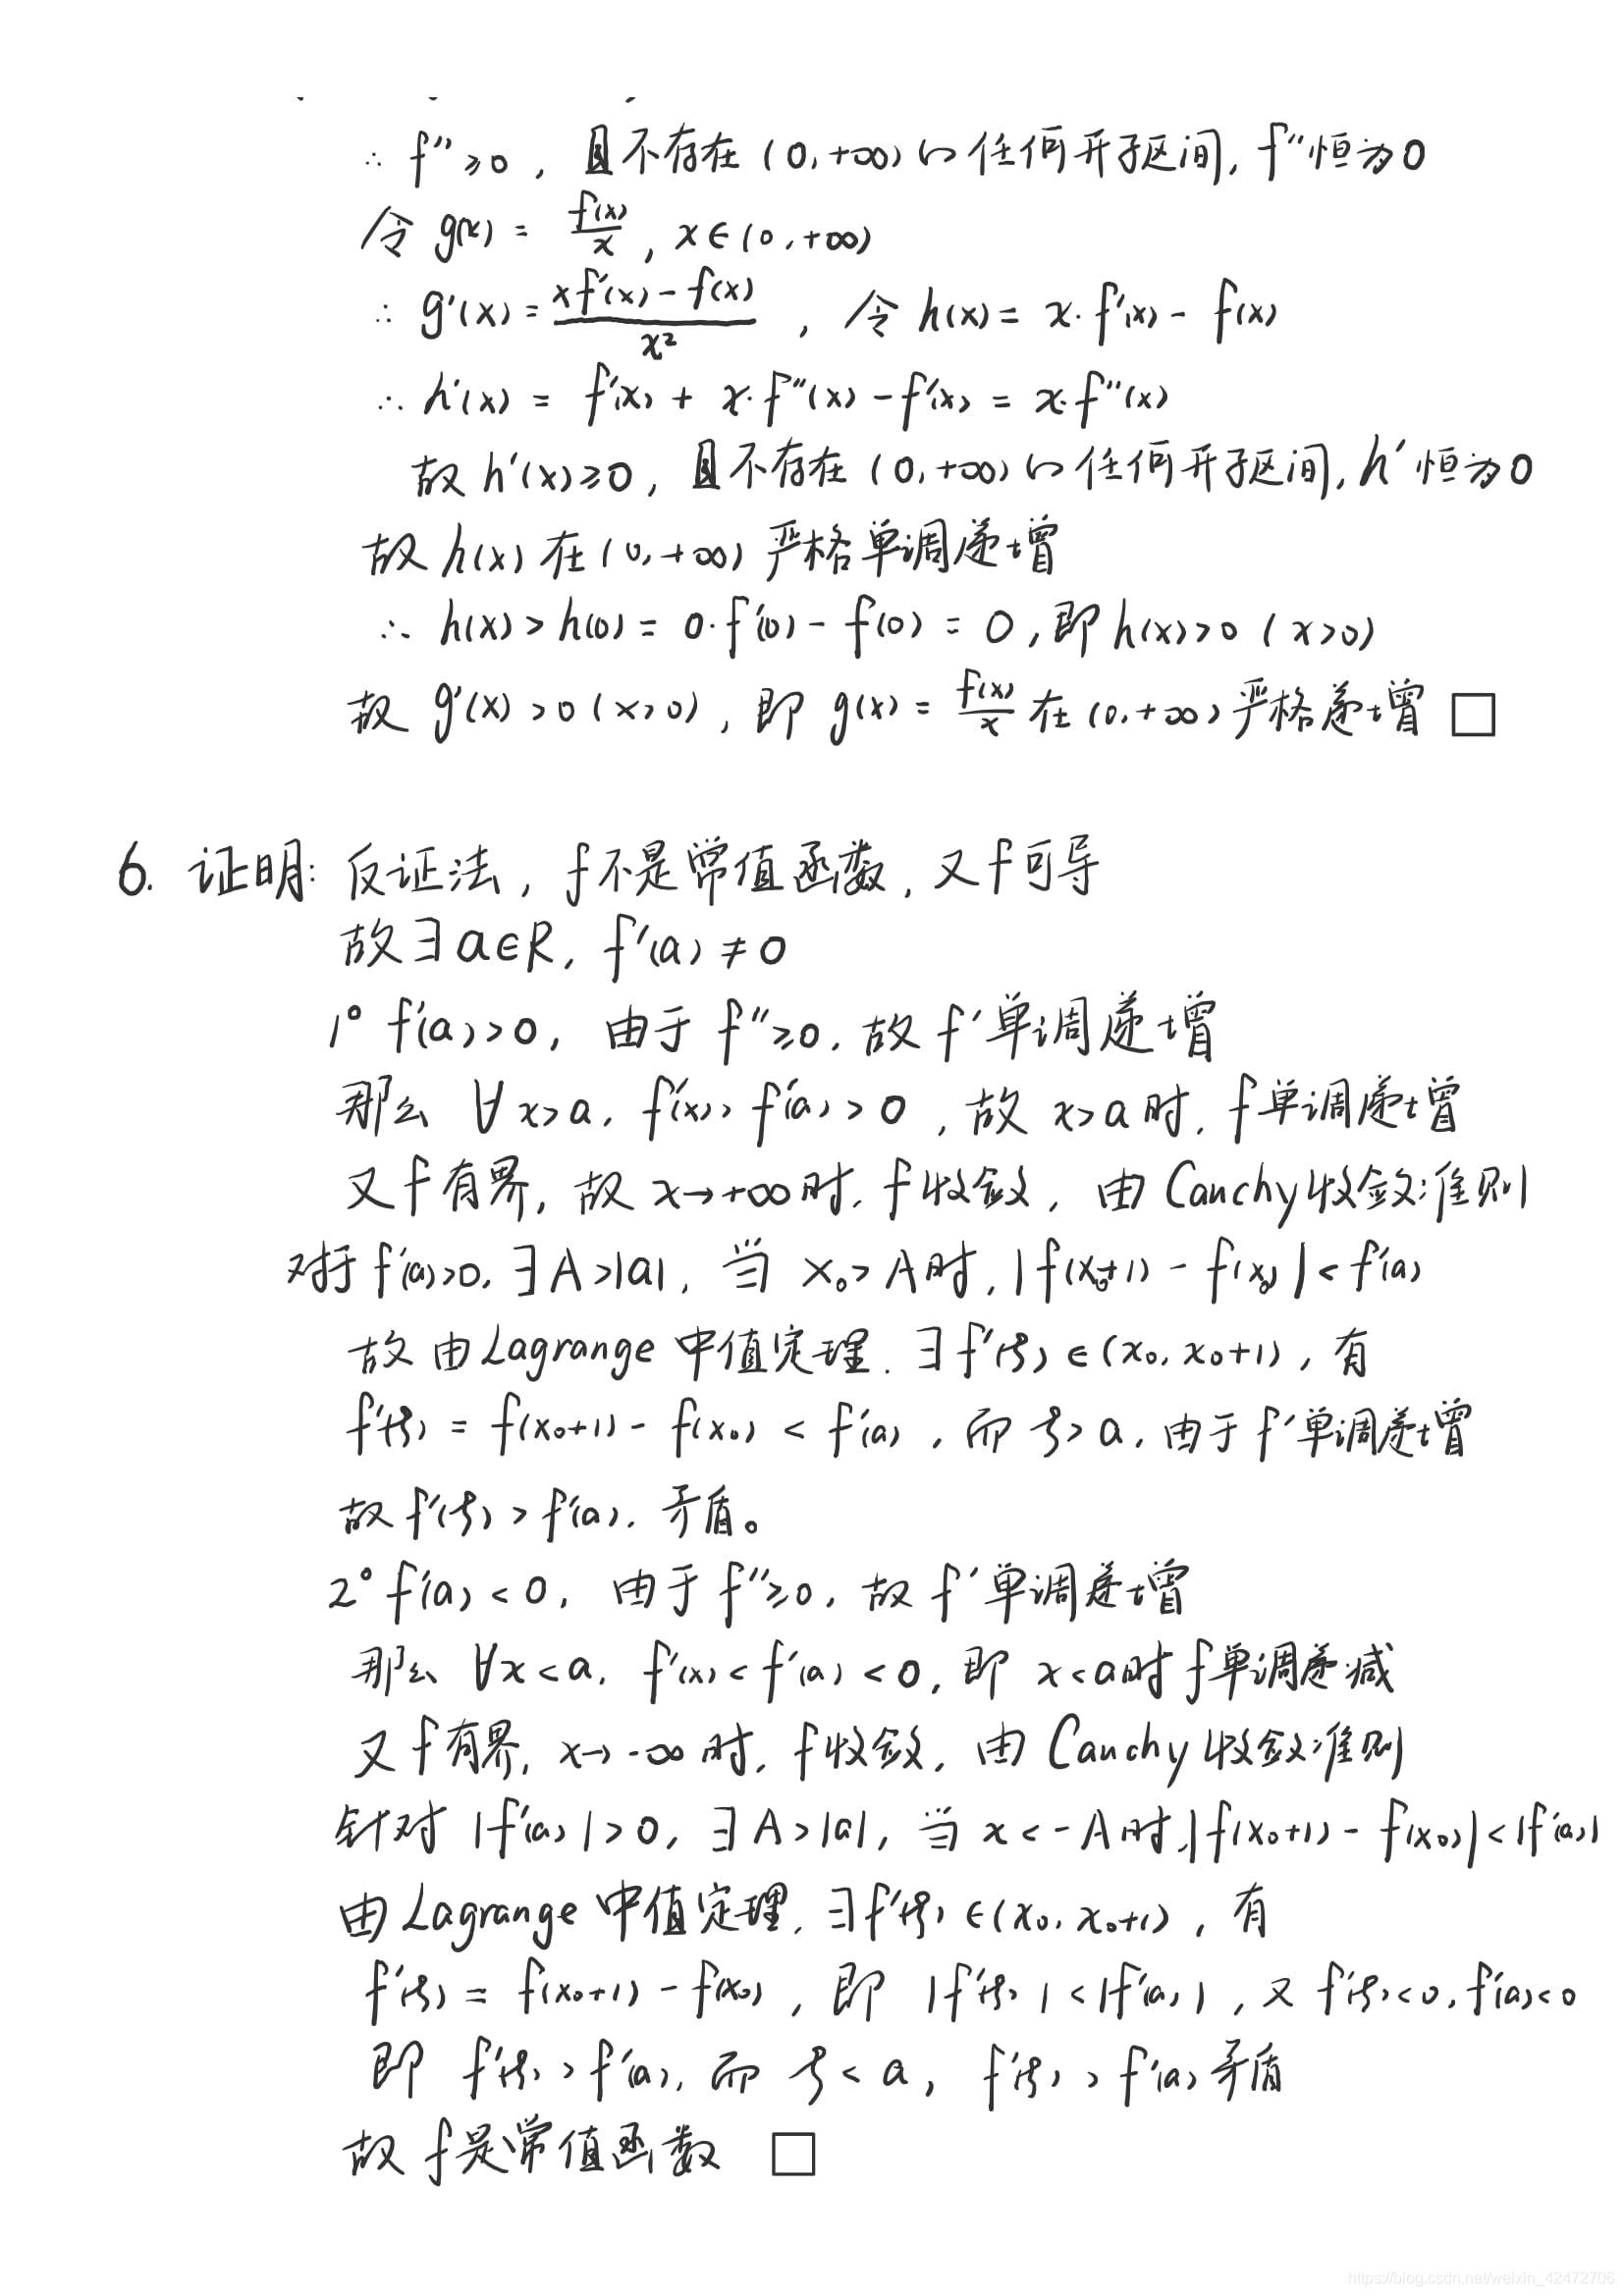 ∴ f''≥0, 且不存在(0,+∞)的任何开子区间, f''恒为0
令 g(x) = f(x)/x, x∈(0,+∞)
∴ g'(x) = (xf'(x)-f(x))/x², 令 h(x) = x·f'(x) - f(x)
∴ h'(x) = f'(x) + x·f''(x) - f'(x) = x·f''(x)
故 h'(x)≥0, 且不存在(0,+∞)的任何开子区间, h'恒为0
故 h(x) 在(0,+∞)严格单调递增
∴ h(x) > h(0) = 0·f'(0) - f(0) = 0, 即 h(x)>0 (x>0)
故 g'(x) >0 (x>0), 即 g(x) = f(x)/x 在(0,+∞)严格递增 □
6. 证明: 反证法, f不是常值函数, 又f可导
故∃a∈R, f'(a) ≠ 0
1° f'(a)>0, 由于 f''≥0, 故 f'单调递增
那么 ∀x>a, f'(x)> f'(a)>0, 故 x>a时, f单调递增
又f有界, 故 x→+∞时, f收敛, 由Cauchy收敛准则
对于 f'(a)>0, ∃A>|a|, 当 x₀>A时, |f(x₀+1) - f(x₀)| < f'(a)
故由Lagrange中值定理, ∃f'(ξ)∈(x₀, x₀+1), 有
f'(ξ) = f(x₀+1) - f(x₀) < f'(a), 而 ξ>a, 由于f'单调递增
故 f'(ξ) > f'(a), 矛盾。
2° f'(a) < 0, 由于 f''≥0, 故 f'单调递增
那么 ∀x<a, f'(x) < f'(a) < 0, 即 x<a时f单调递减
又f有界, x→-∞时, f收敛, 由Cauchy收敛准则
针对 |f'(a)|>0, ∃A>|a|, 当 x<-A时,|f(x₀+1) - f(x₀)|<|f'(a)|
由Lagrange中值定理, ∃f'(ξ)∈(x₀, x₀+1), 有
f'(ξ) = f(x₀+1) - f(x₀), 即 |f'(ξ)|<|f'(a)|, 又 f'(ξ)<0, f'(a)<0
即 f'(ξ) > f'(a), 而 ξ<a, f'(ξ) > f'(a)矛盾
故 f是常值函数 □
https://blog.csdn.net/weixin_42472706